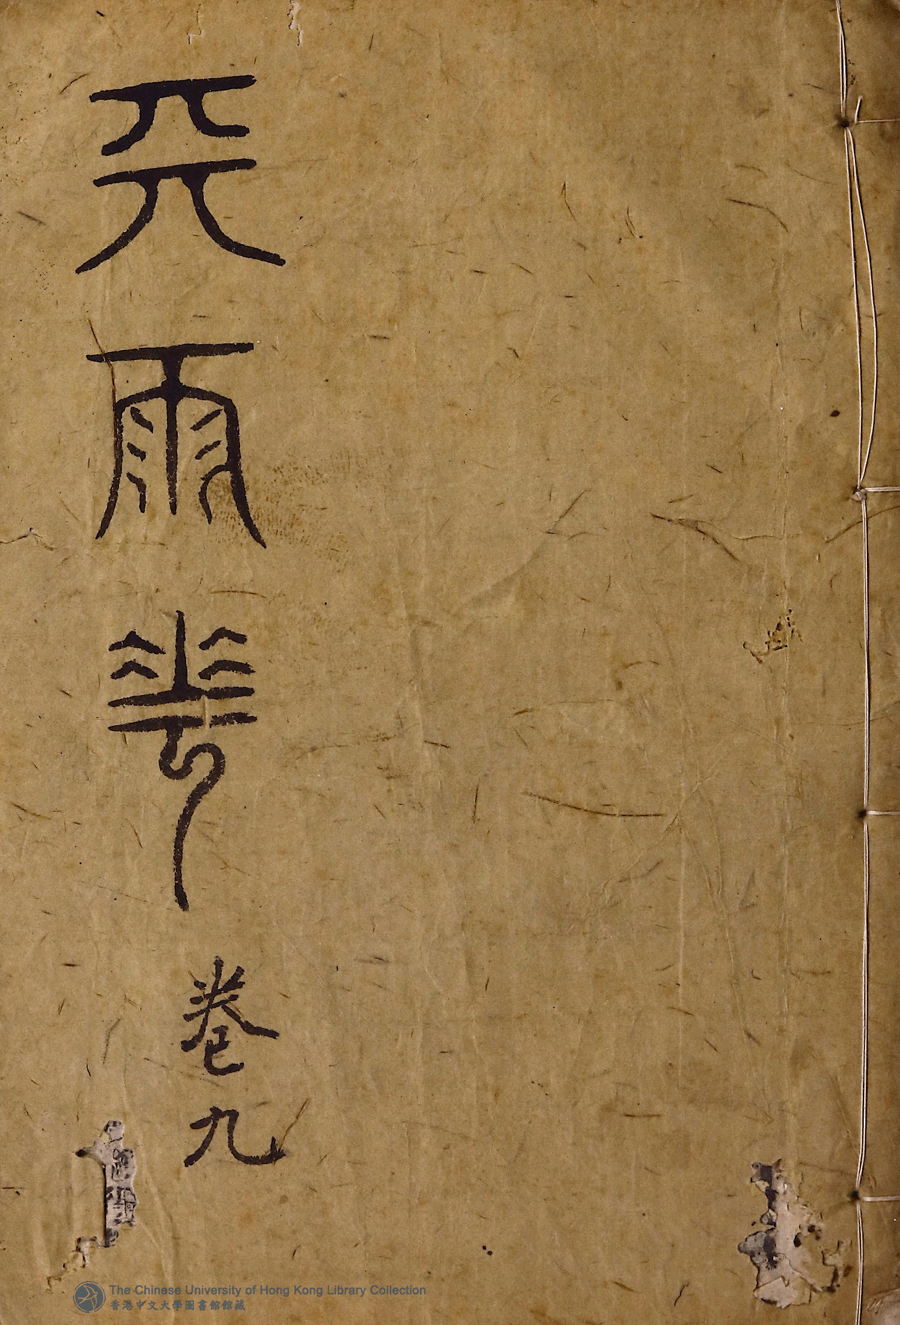 天雨花
卷九
The Chinese University of Hong Kong Library Collection
香港中文大學圖書館館藏